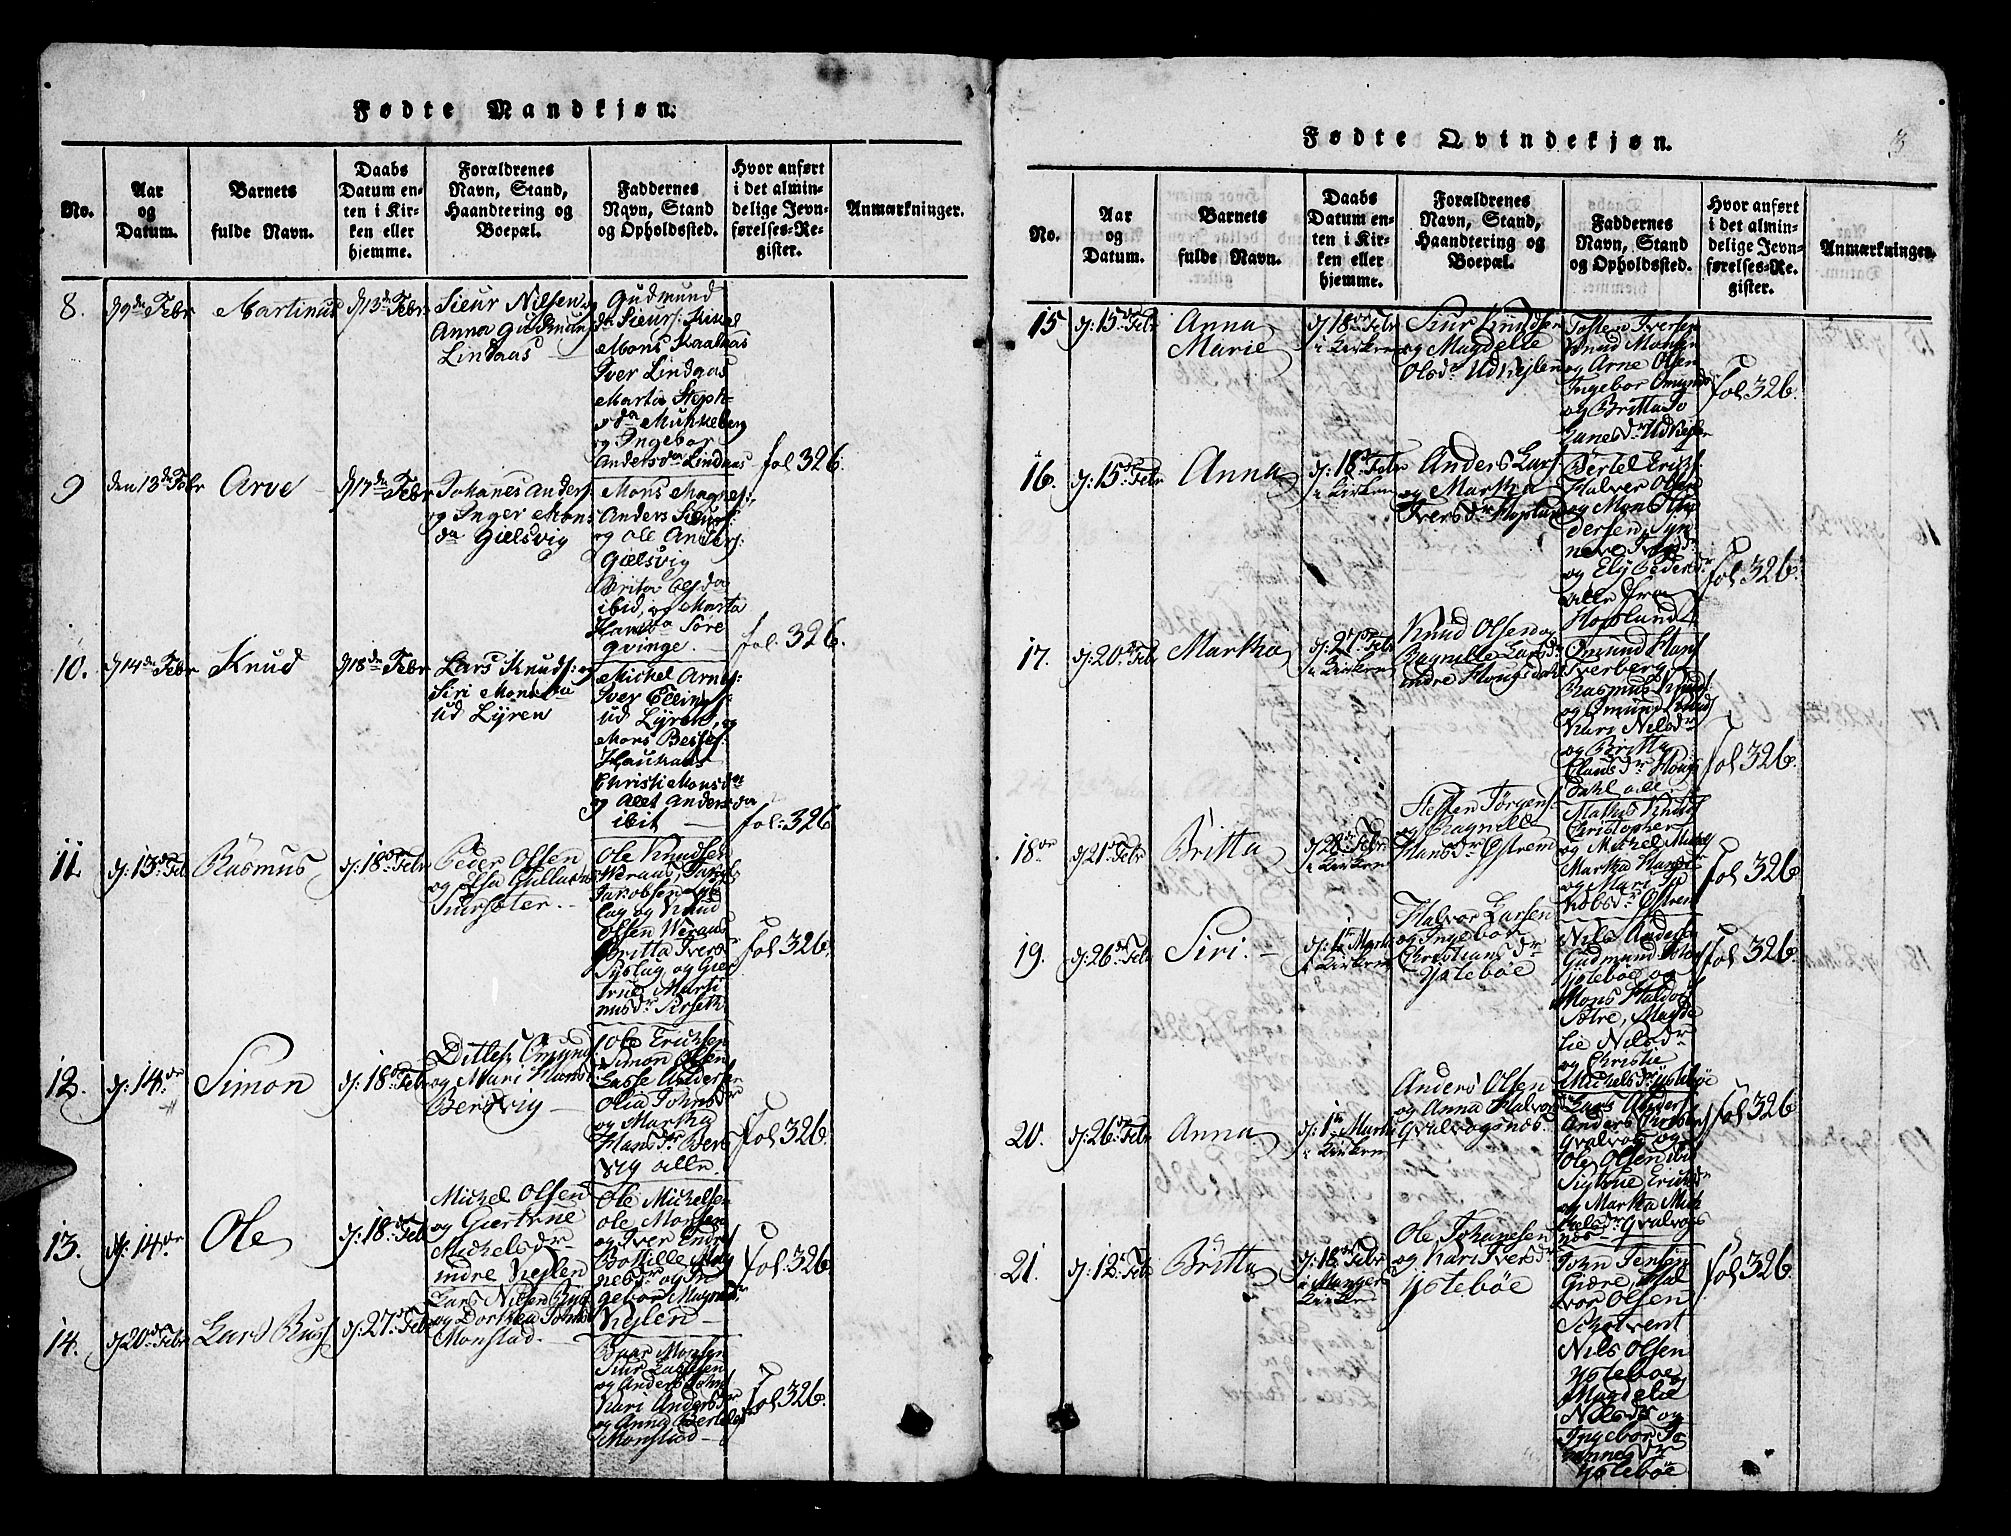 Fødte Mandkjøn.
No.
Aar
og
Datum.
Barnets
fulde Navn.
Daabs
Datum en-
ten i Kir-
ken eller
hjemme.
Forældrenes
Navn, Stand,
Haandtering og
Boepæl.
Faddernes
Navn, Stand
og Opholdssted.
Hvor anført
i det almin-
delige Jevn-
førelses-Re-
gister.
Anmærkninger.
8.
d 9de Febr
Martinus
d 13de Febr
Sieur Nilsen og
Anna Gudmunds
Lindaas
Gudmund
Mons Kaalaas
Iver Lindaas
Marta Steph-
da Munkeberg
og Ingebor
Andersda Lindaas
fol 326.
9
den 13de Febr
Arve
d 17de Febr
Johanes Anders:
og Inger Mons
da Gielsvig
Mons Magnes:
Anders Sieurs:
og Ole Anders:
Gielsvig
Brita Olsda
ibid, og Marta
Hansda Söre
qvinge.
fol. 326.
10.
d 14de Febr
Knud
d 18de Febr
Lars Knuds: og
Siri Monsda
ud Lÿren
Michel Arnes:
Iver Ellings:
ud Lÿren, og
Mons Besses:
Haukaas
Christi Monsda
og Alet Andersda
ibit
fol: 326
11.
d: 13de Feb
Rasmus
d: 18de Febr
Peder Olsen
og Elsa Gullachs
Ole Knudsen
Jakobsen
lag og Knud
Olsen Weraas
Britta Ivers
Syslag og Gier
true Marti
nusdr
fol 326.
12.
d: 14de
Simon
d: 18de Febr
Ditlef Omund
og Mari Hansd
Bersvig
Ole Erichsen
Simon Olsen
Lasse Anders
Olia Johnsdr
og Martha
Hansdr Bers
vig alle.
fol 326.
13.
d: 14de
Ole
d: 18de Feb
Michel Olsen
og Giertrue
Michelsdr
indre Kiejlen
Ole Michelsen
Ole Monsen
og Iver Endre
Bottille Mag
nesdr og In
gebor Magnesd
Kiejlen
fol 326
14.
d 20de Febr
Lars Russ
d: 27de Feb
Lars Nilsen Russ
og Dorthea Johns
Monstad.
Baar Monsen
Siur Lassesen
og Anders Johns
Kari Andersdr
og Anna Bertelsdr
Monstad
fol 326.
3
Fødte Qvindekjøn.
No.
Aar
og
Datum.
Barnets
fulde Navn.
Daabs
Datum en-
ten i Kir-
ken eller
hjemme.
Forældrenes
Navn, Stand,
Haandtering og
Boepæl.
Faddernes
Navn, Stand
og Opholdssted.
Hvor anført
i det almin-
delige Jevn-
førelses-Re-
gister.
Anmærkninger.
15
d: 15de Febr
Anna
Marie
d 18de Febr
i Kirken
Siur Knudsen
og Magdelie
Olsdr Udkiejlen
Tosten Iversen
Knud Monsen
og Arne Olsen
Ingebor Omunds
og Britta Jo
hanesdr Udkiejlen
fol 326.
16.
d: 15de Febr
Anna
d: 18de Febr
i Kirken
Anders Lars
og Martha
Iversdr Hopland
Bertel Erichs
Halver Olsen
og Mons An
dersen, Syn
neve
og Ely Pedersdr
alle fra
Hopland
fol 326.
17.
d: 20de Feb
Martha
d: 27de Feb
i Kirken
Knud Olsen og
Ragnille Larsdr
indre Hougsdahl
Omund Hans
Tverberg
Rasmus Knuds
og Omund Knuds
Kari Nilsdr
og Britta
Elansdr Hougs
dahl alle
fol 326.
18de
d 21de Febr
Britta
d 28de Febr
i Kirken
Steffen Jörgens
og Ragnille
Hansdr Ostrem
Mathis Knuds
Christopher
og Michel
Martha Hansdr
og Mari Ja
kobsdr Ostrem
fol 326.
19.
d: 26de Feb
Siri.
d: 1te Martii
i Kirken
Halvor Larsen
og Ingebor
Christiansdr
Ystebøe
Nils Andersen
Gudmund
Ystebøe og
Mons Haldors
Sætre, Magde
lie Nilsdr
og Christie
Michelsdr Ystebøe
fol 326.
20.
d: 26de Feb
Anna
d: 1te Martii
i Kirken
Anders Olsen
og Anna Halvors
Qvalvogsnes
Lars Anders
Anders
Qvalvog og
Ole Olsen ibid
Erichsdr
og Martha Mich
elsdr Qvalvogs
nes
fol 326
21.
d: 12te Feb
Britta
d: 18de Febr
i Manger
Kirken
Ole Johannesen
og Kari Iversdr
Ystebøe
John Jensen
Hal
vor Olsen
Nils Olsen
Ystebøe og
Magdelie
Nilsdr og
Ingebor Jo
hannesdr
Ystebøe
fol 326